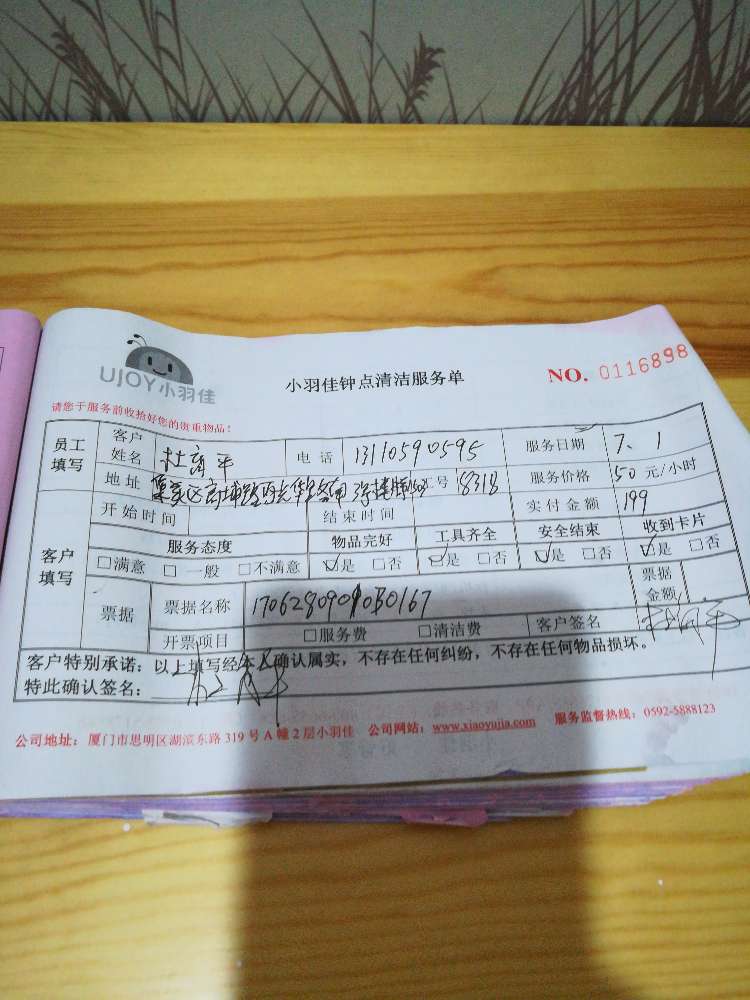 UJOY小羽佳
小羽佳钟点清洁服务单
NO. 0116898
请您于服务前收拾好您的贵重物品！
员工填写 客户姓名 杜 平 电话 13110590595 服务日期 7、1
地址 集美区 号 8318 服务价格 50元/小时
客户填写 开始时间 结束时间 实付金额 199
服务态度 物品完好 工具齐全 安全结束 收到卡片
□满意 □一般 □不满意 ☑是 □否 ☑是 □否 ☑是 □否 ☑是 □否
票据 票据名称 票据金额
开票项目 □服务费 □清洁费 客户签名
客户特别承诺：以上填写经本人确认属实，不存在任何纠纷，不存在任何物品损坏。
特此确认签名：
公司地址：厦门市思明区湖滨东路 319 号 A 幢 2 层小羽佳 公司网站：www.xiaoyujia.com 服务监督热线：0592-5888123